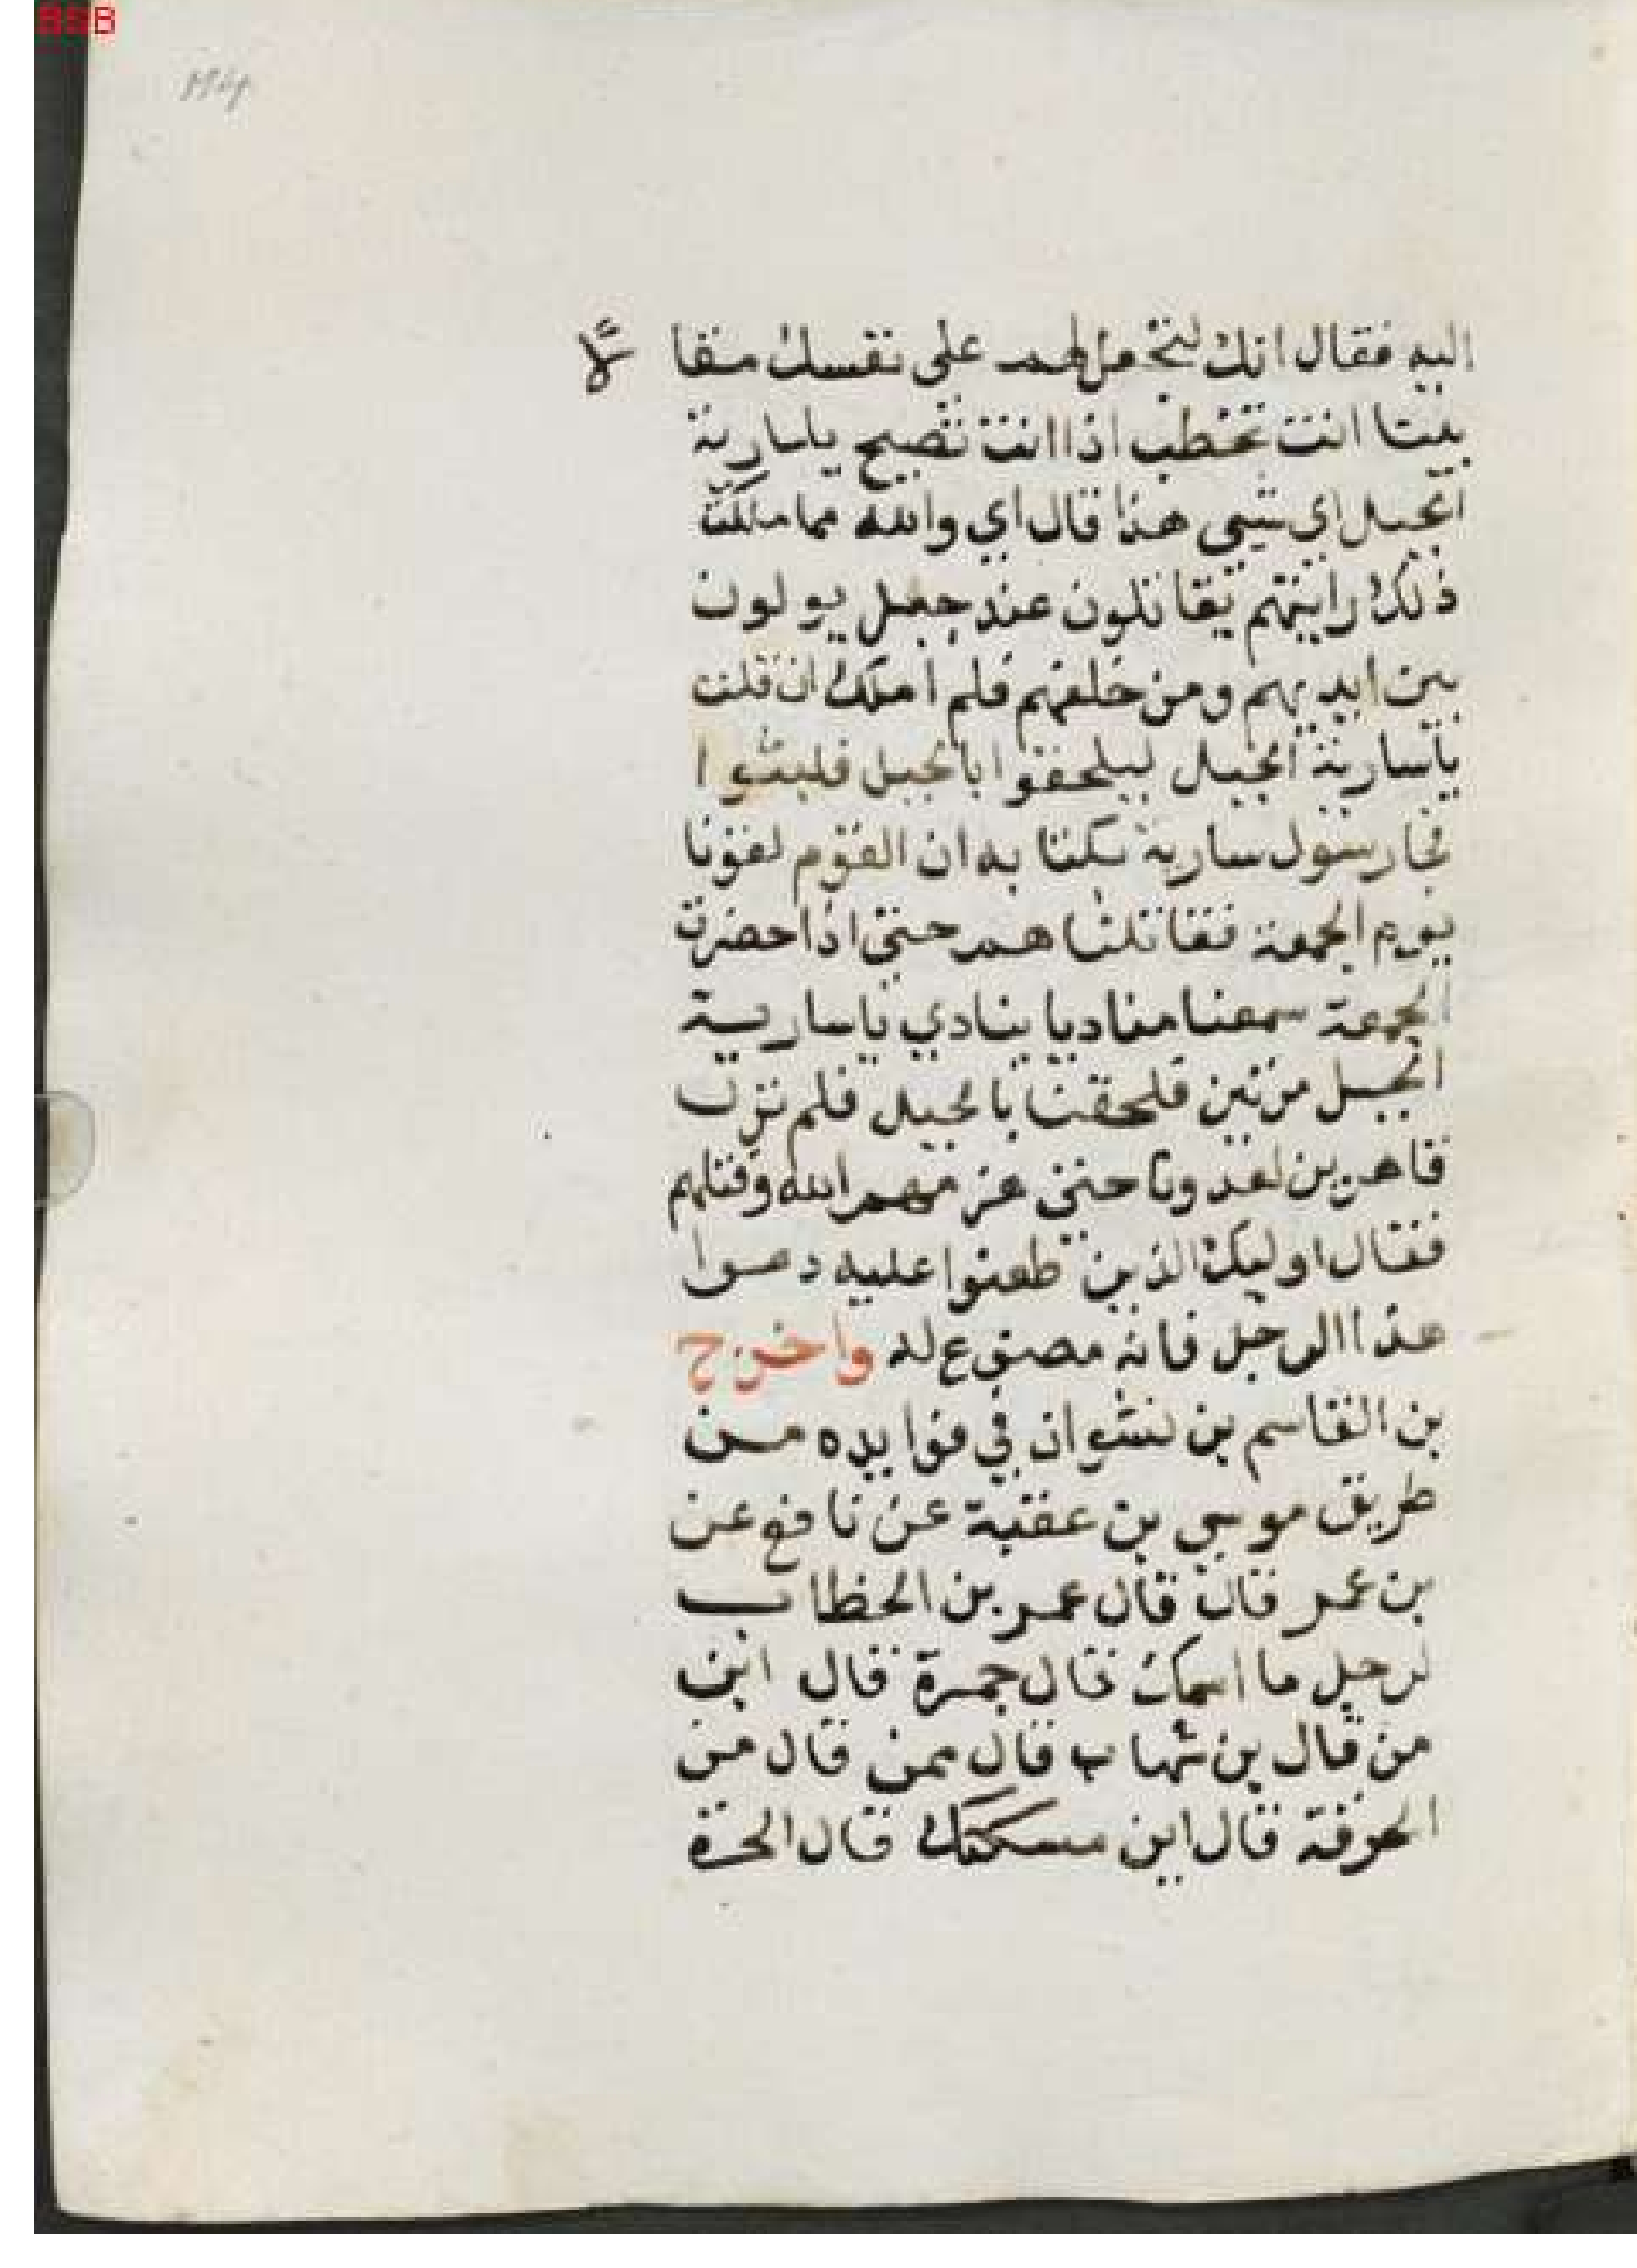 BSB
اليه فقال انك لتجعل لهم على نفسك مقا
لا
بينا انت تخطب اذا انت تصيح ياسارية
الجبل اي شيى هذا قال اي والله ما ملكت
ذلك رايتهم يقاتلون عند جبل يولون
بين ايديهم ومن خلفهم فلم املك ان قلت
ياسارية الجبل ليلحقوا بالجبل فلبثوا
فجا رسول سارية بكتابه ان القوم لقونا
يوم الجمعة فقاتلناهم حتى اذا حضرت
الجمعة سمعنا مناديا ينادي ياسارية
الجبل مرتين فلحقنا بالجبل فلم نزل
قاهرين لعدونا حتى هزمهم الله وقتلهم
فقال اوليك الذين طعنوا عليه دعوا
هذا الرجل فانه مصنوع له واخرج
بن القاسم بن بشران في فوايده من
طريق موسى بن عقبة عن نافع عن
بن عمر قال قال عمر بن الخطاب
لرجل ما اسمك قال جمرة قال ابن
من قال بن شهاب قال ممن قال من
الحرقة قال اين مسكنك قال الحرة